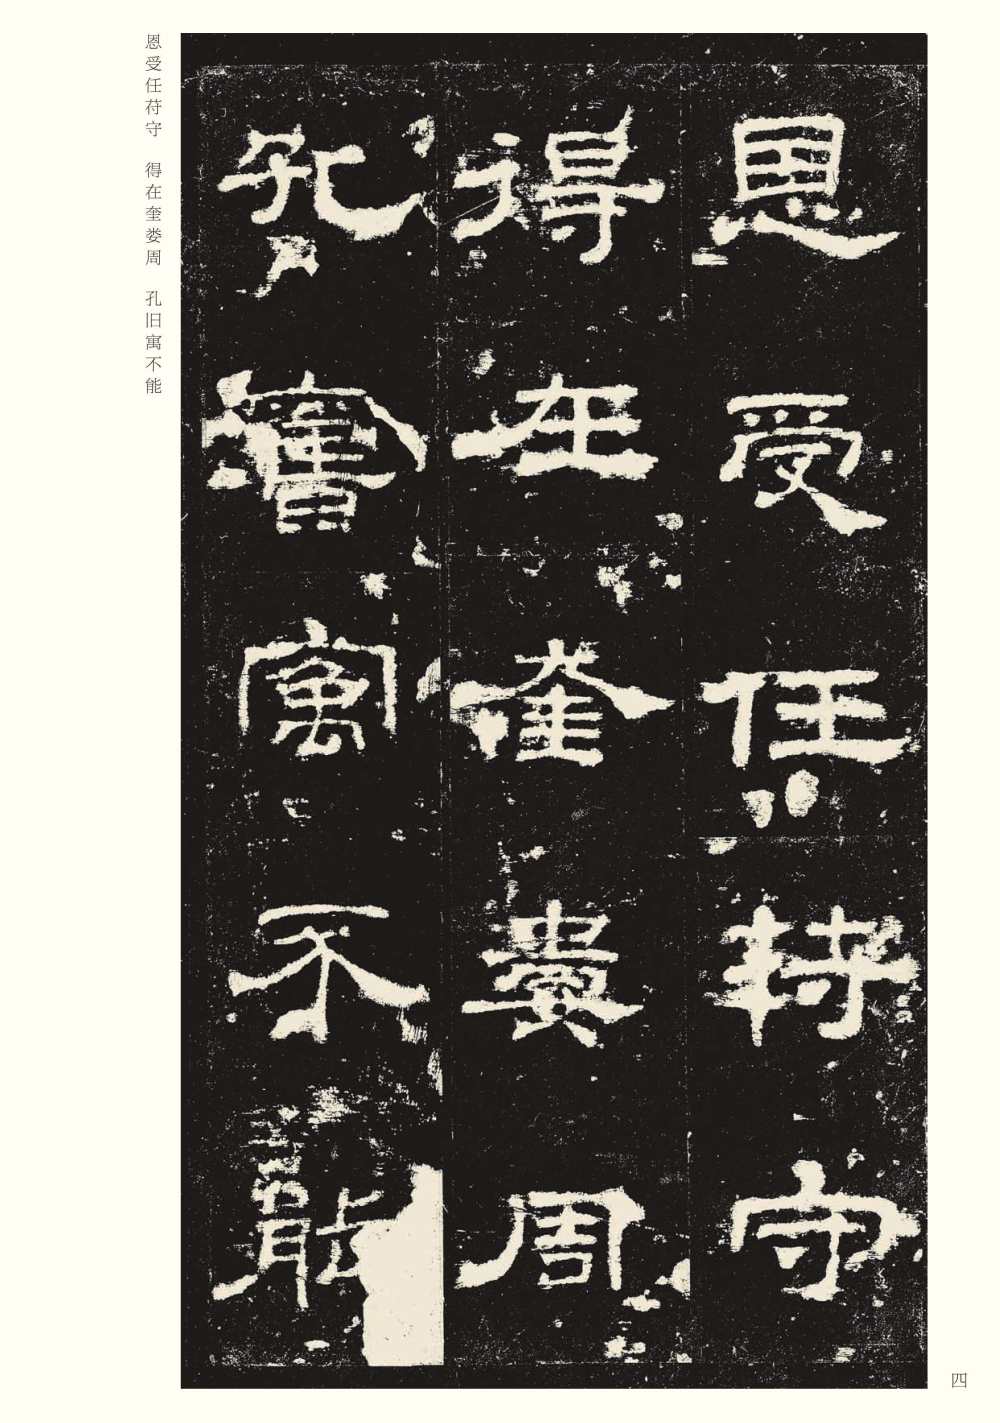 恩受任符守
得在奎娄周
孔舊寓不能
恩受任苻守　得在奎娄周　孔旧寓不能
四